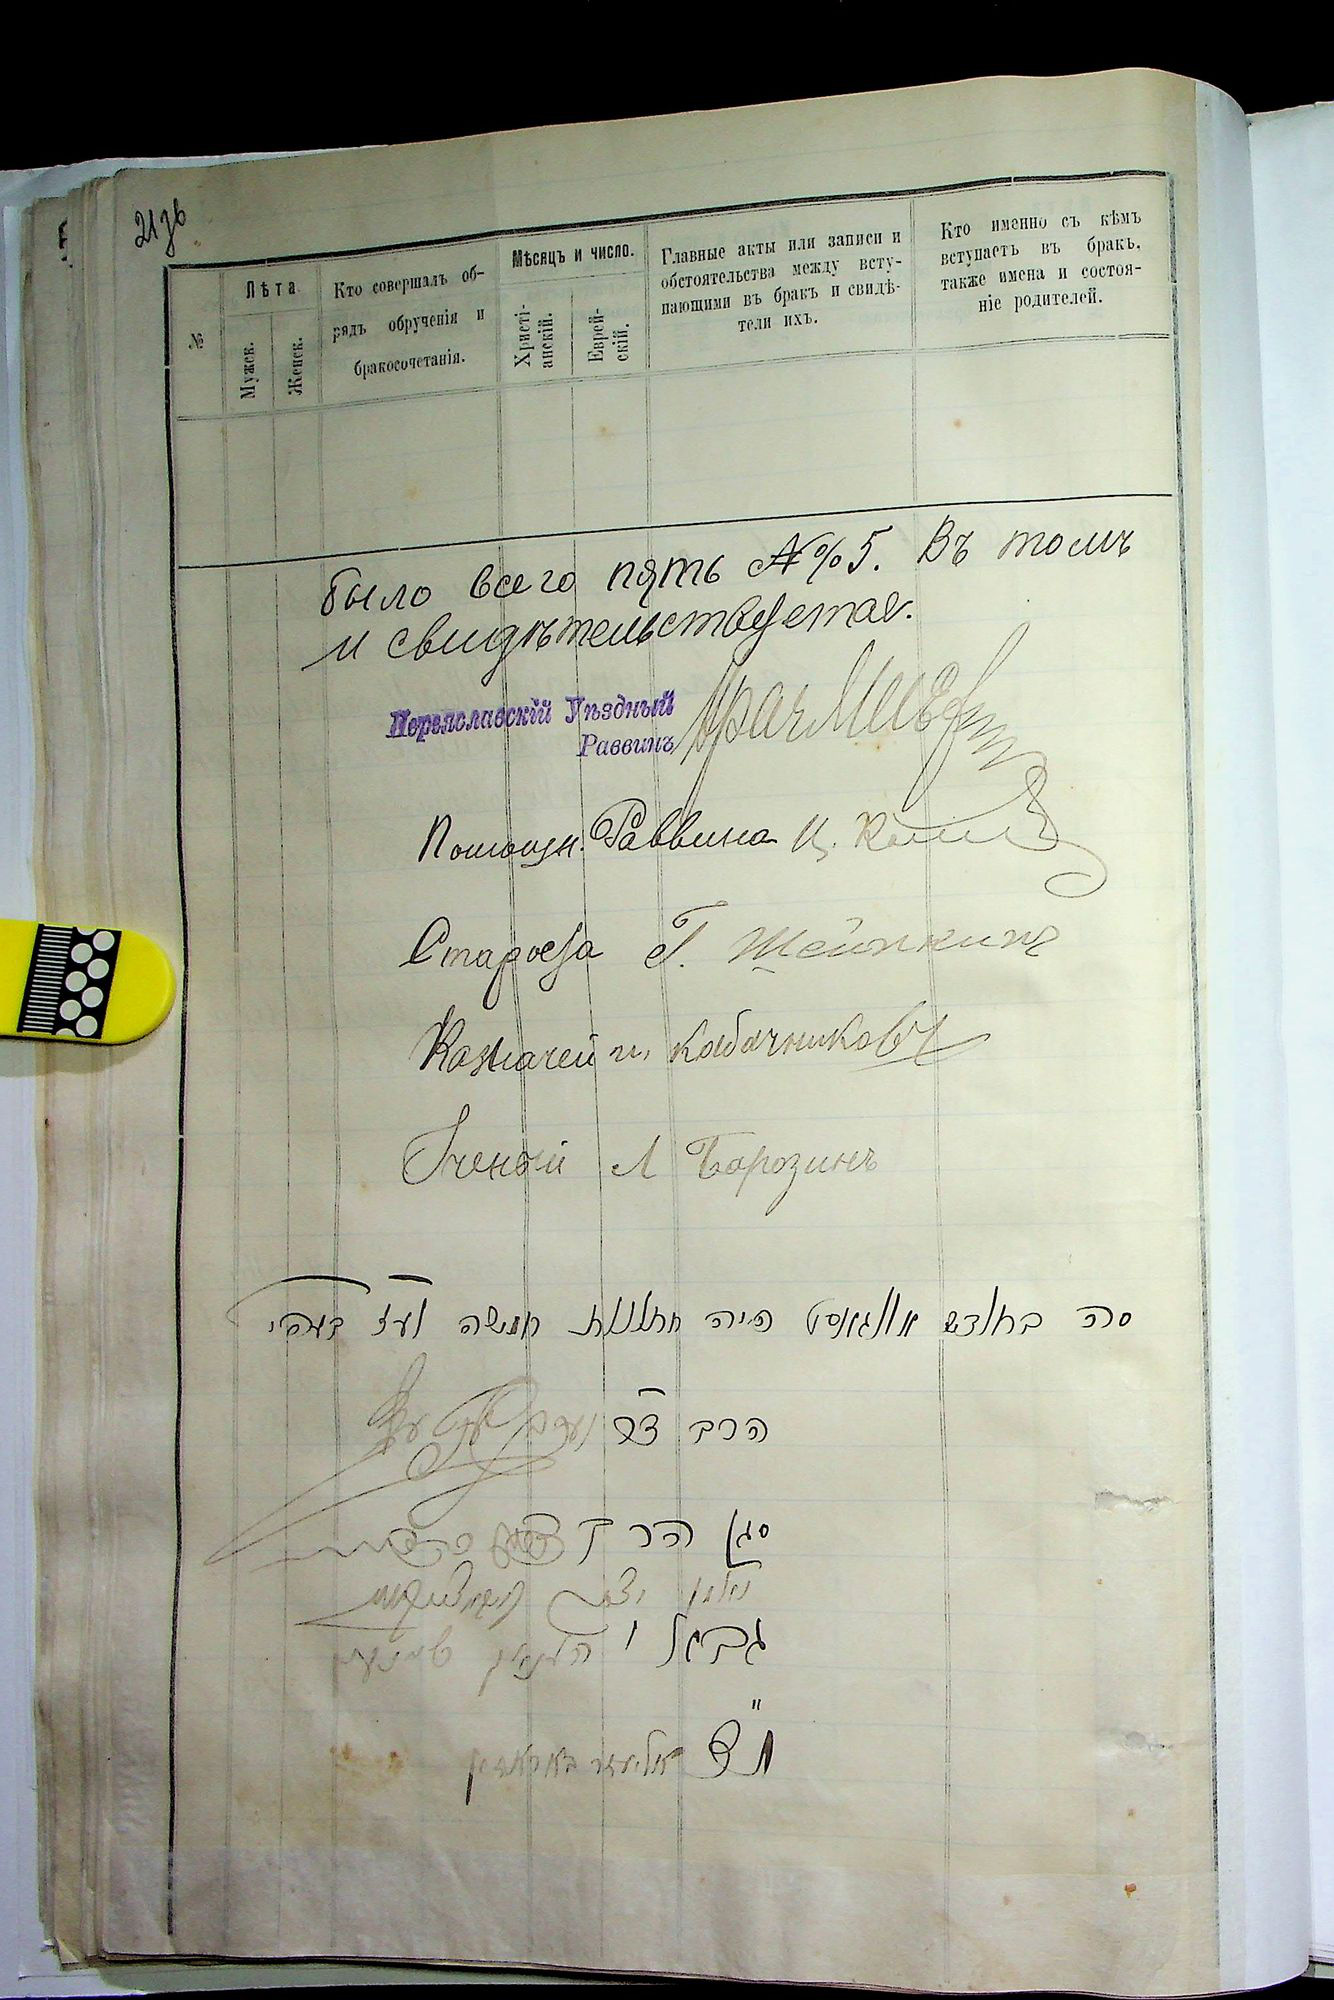 21 зв
№
Лѣта
Мужск.
Женск.
Кто совершалъ об-
рядъ обрученія и
бракосочетанія.
Мѣсяцъ и число.
Христі-
анскій.
Еврей-
скій.
Главные акты или записи и
обстоятельства между всту-
пающими въ бракъ и свидѣ-
тели ихъ.
Кто именно съ кѣмъ
вступаетъ въ бракъ,
также имена и состоя-
ніе родителей.
было всего пять №№ 5. Въ томъ
и свидѣтельствуется.
Переяславскій Уѣздный
Раввинъ
Помощн. Раввина Ц.
Староста Г. Шейнкинъ
Казначей И. Кабачниковъ
Ученый Л Борозинъ
סה בחודש אווגוסט היה חתונות חמשה ועז
הרב
סגן הר
גבאי